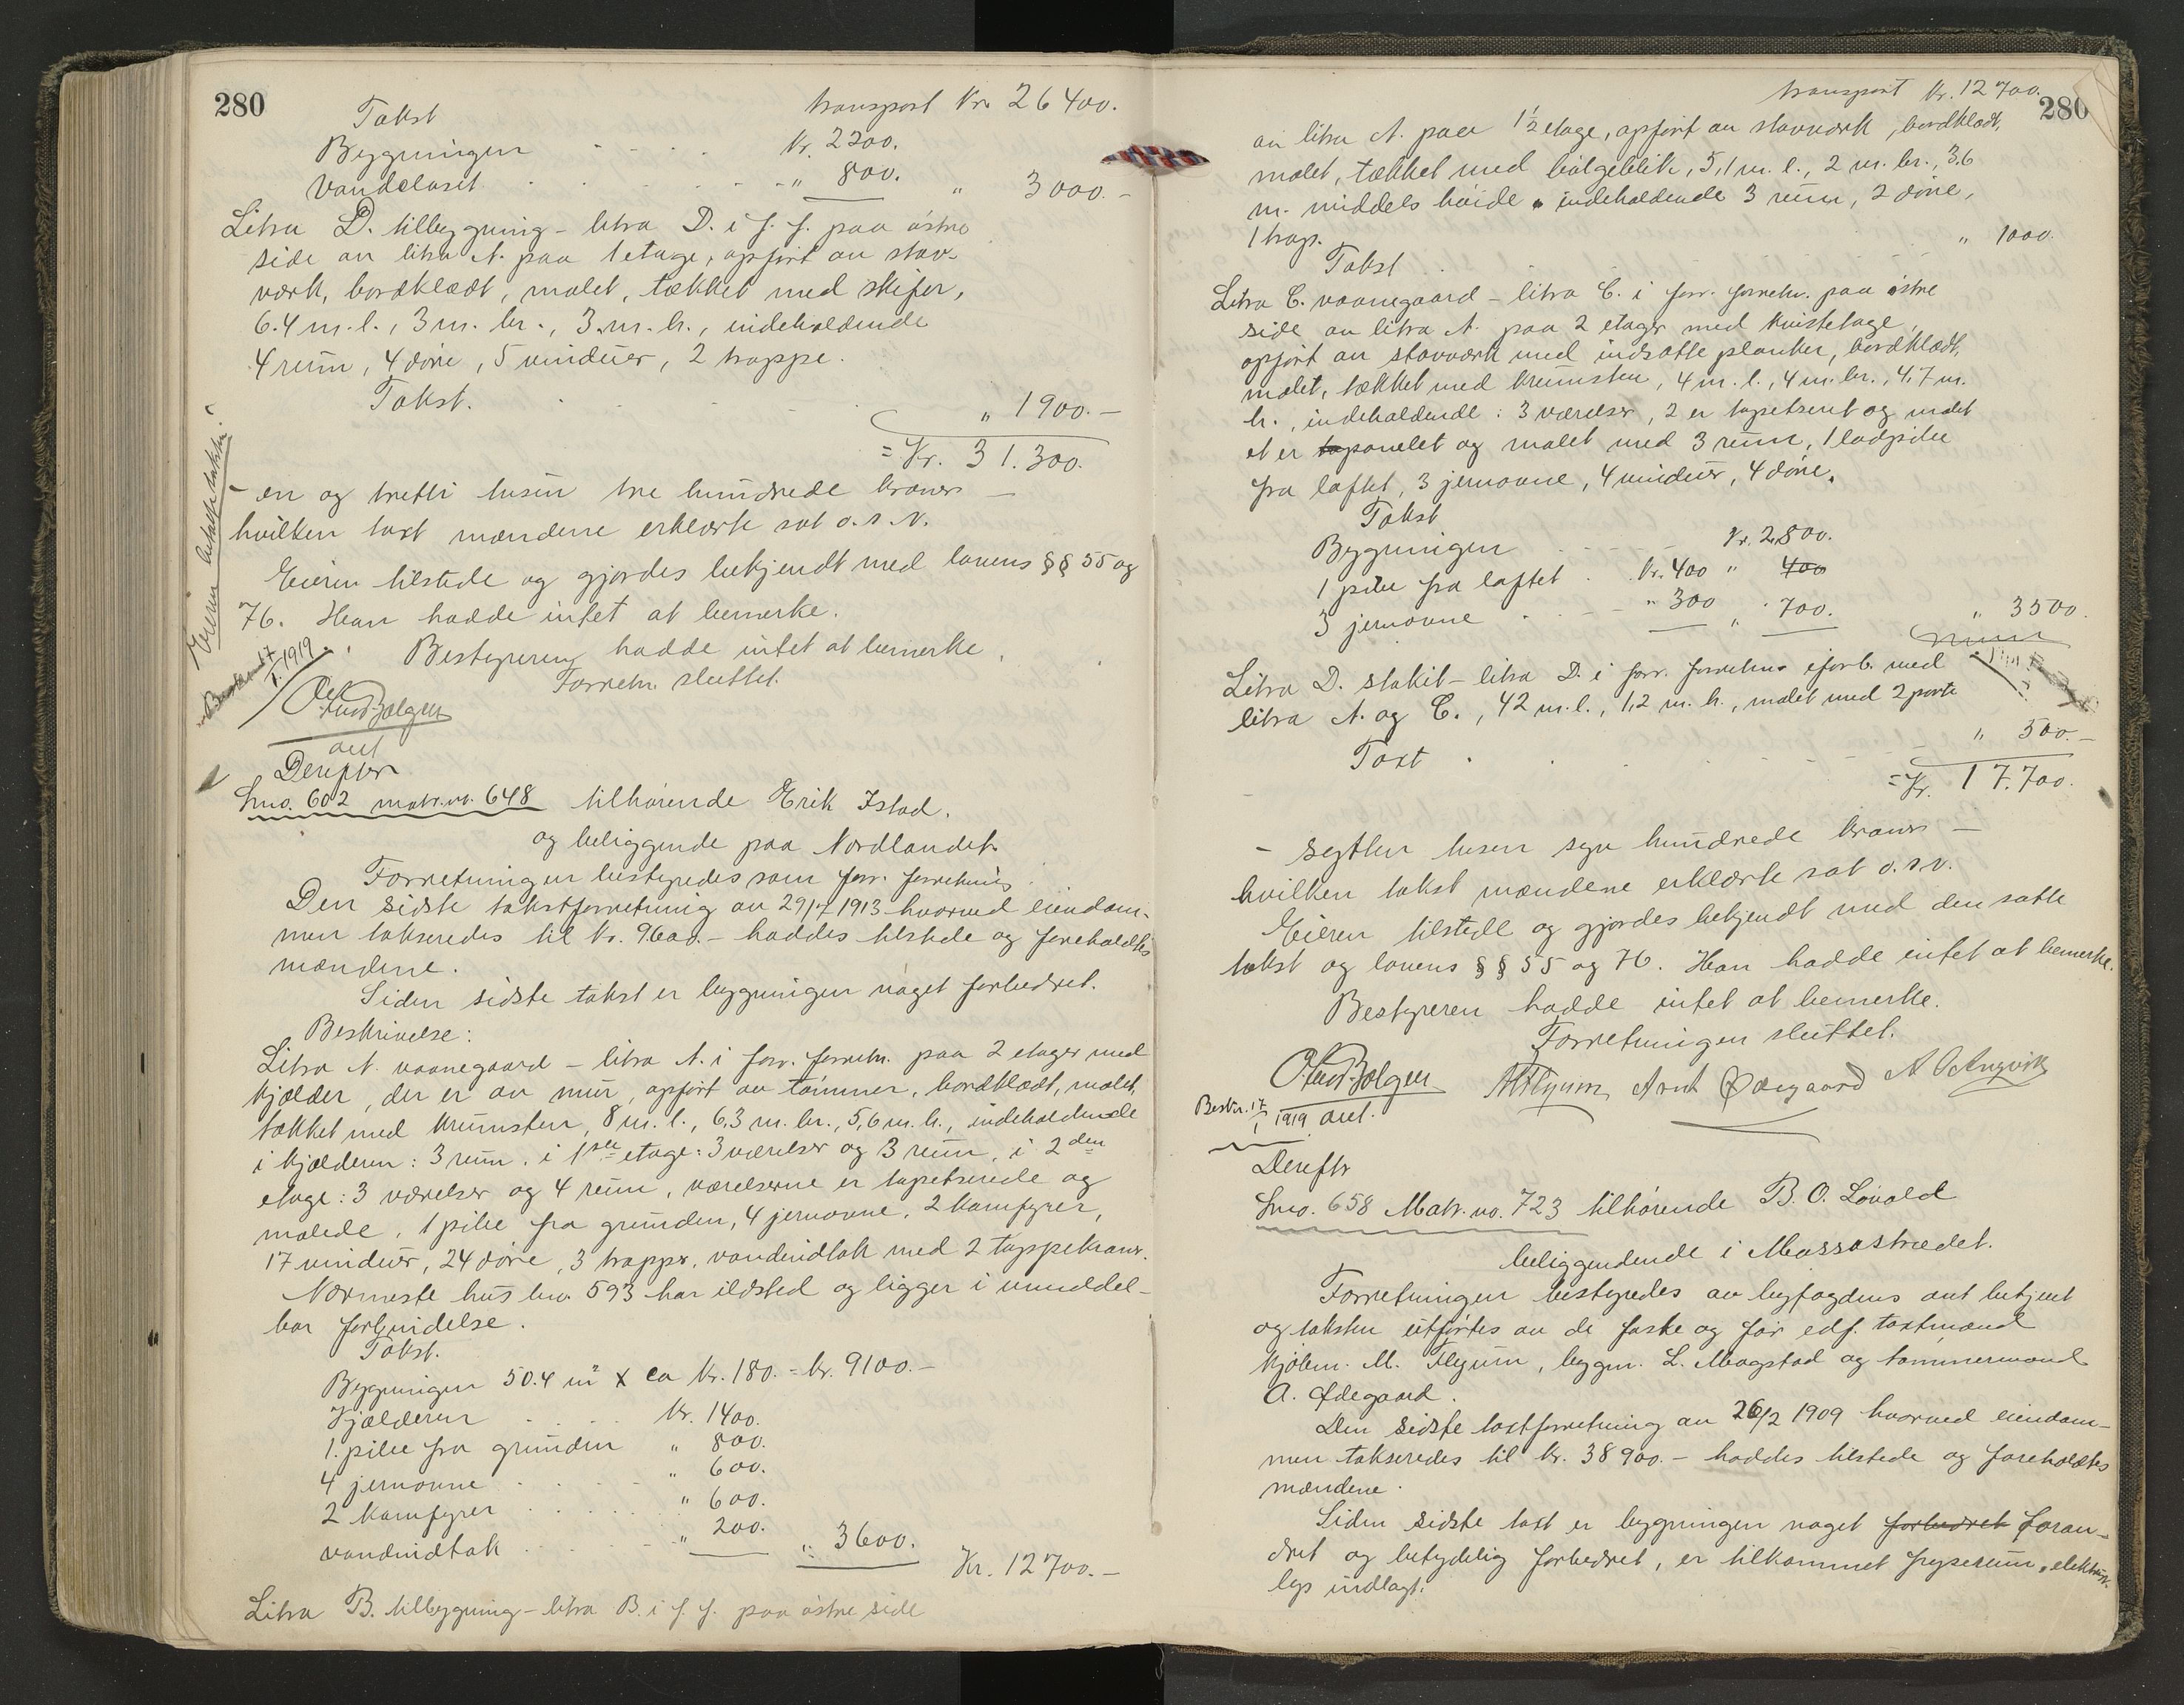 280
transport Kr. 26400.
Takst
Bygningen . . . . Kr. 2200.
Vandclaset . . . . . - " 800. " 3000.-
Litra D. tilbygning - litra D. i f. f. paa østre
side av litra A. paa 1 etage, opført av stav-
værk, bordklædt, malet, tækket med skifer,
6.4 m. l., 3 m. br., 3. m. h., indeholdende
4 rum, 4 døre, 5 vinduer, 2 trappe.
Takst. . . . . " 1900.-
= Kr. 31.300.
- en og tretti tusen tre hundrede kroner -
hvilken taxt mændene erklærte sat o. s. v.
Eieren tilstede og gjordes bekjendt med lovens §§ 55 og
76. Han hadde intet at bemerke.
Bestyreren hadde intet at bemerke.
Forretn. sluttet.
Eieren
1919
aut
Derefter
Lno. 602 matr. nr. 648 tilhørende Erik Istad.
og beliggende paa Nordlandet.
Forretningen bestyredes som forr. forretning.
Den sidste takstforretning av 29/7 1913 hvorved eiendom-
men takseredes til Kr. 9600.- haddes tilstede og foreholdtes
mændene.
Siden sidste takst er bygningen noget forbedret.
Beskrivelse:
Litra A. vaanegaard - litra A. i forr. forretn. paa 2 etager med
kjælder, der er av mur, opført av tømmer, bordklædt, malet,
tækket med krumsten, 8 m. l., 6,3 m. br., 5,6 m. h., indeholdende
i kjælderen: 3 rum. i 1ste etage: 3 værelser og 3 rum, i 2den
etage: 3 værelser og 4 rum, værelserne er tapetserede og
malede, 1 pibe fra grunden, 4 jernovne, 2 komfyrer,
17 vinduer, 24 døre, 3 trapper, vandindtak med 2 tappekraner.
Nærmeste hus bno. 593 har ildsted og ligger i umiddel-
bar forbindelse.
Takst.
Bygningen 50.4 m² x ca Kr. 180. = Kr. 9100.-
Kjælderen . . . . Kr. 1400.
1. pibe fra grunden " 800.
4 jernovne . . . . " 600.
2 komfyrer . . . . " 600.
vandindtak . . . . " 200. " 3600.
Kr. 12700.-
Litra B. tilbygning - litra B. i f. f. paa østre side
transport Kr. 12700.
280
av litra A. paa 1½ etage, opført av stavværk, bordklædt,
malet, tækket med bølgeblik, 5,1 m. l., 2 m. br., 3.6
m. middels høide indeholdende 3 rum, 2 døre,
1 trap.
Takst . . . . " 1000.
Litra C. vaanegaard - litra C. i forr. forretn. paa østre
side av litra A. paa 2 etager med kvistetage,
opført av stavværk med indsatte planker, bordklædt,
malet, tækket med krumsten, 4 m. l., 4 m. br., 4,7 m.
h., indeholdende: 3 værelser, 2 er tapetseret og malet
et er panelet og malet med 3 rum, 1 lodpibe
fra loftet, 3 jernovne, 4 vinduer, 4 døre.
Takst
Bygningen . . . . Kr. 2,800.
1 pibe fra loftet . . Kr. 400 " 400
3 jernovne . . . . " 300 " 700. " 3500.
Litra D. stakit - litra D. i forr. forretn. i forb. med
litra A. og C., 42 m. l., 1,2 m. h., malet med 2 porte
Taxt . . . . " 500.-
= Kr. 17.700.
- sytten tusen syv hundrede kroner -
hvilken takst mændene erklærte sat o. s. v.
Eieren tilstede og gjordes bekjendt med den satte
takst og lovens §§ 55 og 76. Han hadde intet at bemerke.
Bestyreren hadde intet at bemerke.
Forretningen sluttet.
Arnt Ødegaard
1919 aut.
Derefter
Lno. 658 Matr. no. 723 tilhørende B. O. Løvold
beliggendende i Massastrædet.
Forretningen bestyredes av byfogdens aut betjent
og taksten utførtes av de faste og før edf. taxtmænd
kjøbm. M. Flyum, bygm. L. Magstad og tømmermand
A. Ødegaard.
Den sidste taxtforretning av 26/2 1909 hvorved eiendom-
men takseredes til Kr. 38900.- haddes tilstede og foreholdtes
mændene.
Siden sidste taxt er bygningen noget forbedret foran-
dret og betydelig forbedret, er tilkommet fryserum, elektrisk
lys indlagt.